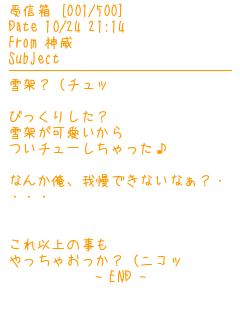 受信箱 [001/500]
Date 10/24 21:14
From 神威
Subject
雪架？（チュッ
びっくりした？
雪架が可愛いから
ついチューしちゃった♪
なんか俺、我慢できないなぁ？・
・・・・
これ以上の事も
やっちゃおっか？（ニコッ
~ END ~